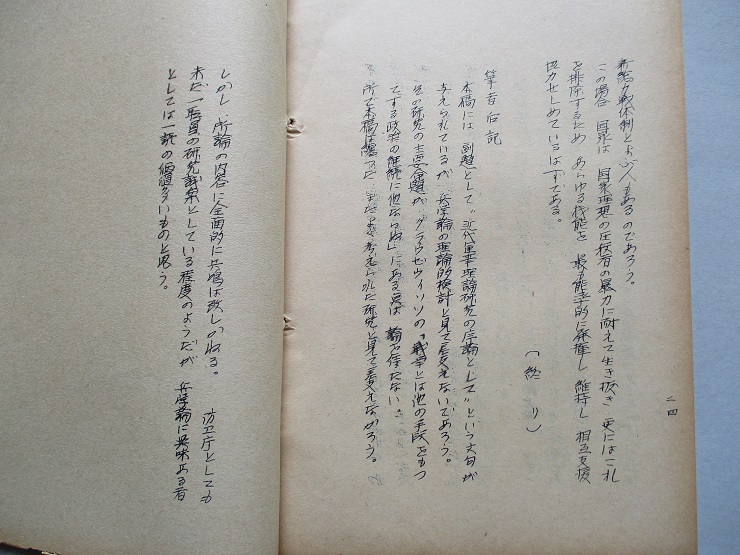 新総力戦体制とよぶ人もあるのであろう。
この場合 国家は 国家理想の圧殺者の暴力に耐えて生き抜き 更にはこれ
を排除するため あらゆる機能を 最も能率的に発揮し 維持し 相互支援
協力せしめているはずである。
(終り)
筆者后記
本稿には 副題として、"近代軍事理論研究の序論として"という文句が
与えられているが 兵学論の理論的検討と見て差支えないであろう。
その研究の主要命題が クラウゼウイツの「戦争とは他の手段をもつ
てする政治の継続に他ならぬ」にある点は 論を俟たない。
所で本稿は 考えられた研究と見て差支えなかろう。
しかし、所論の内容に全面的に共鳴は致しかねる。 防卫庁としても
未だ一職員の研究試案としている程度のようだが 兵学論に興味ある者
としては一読の価値多いものと思う。
二四